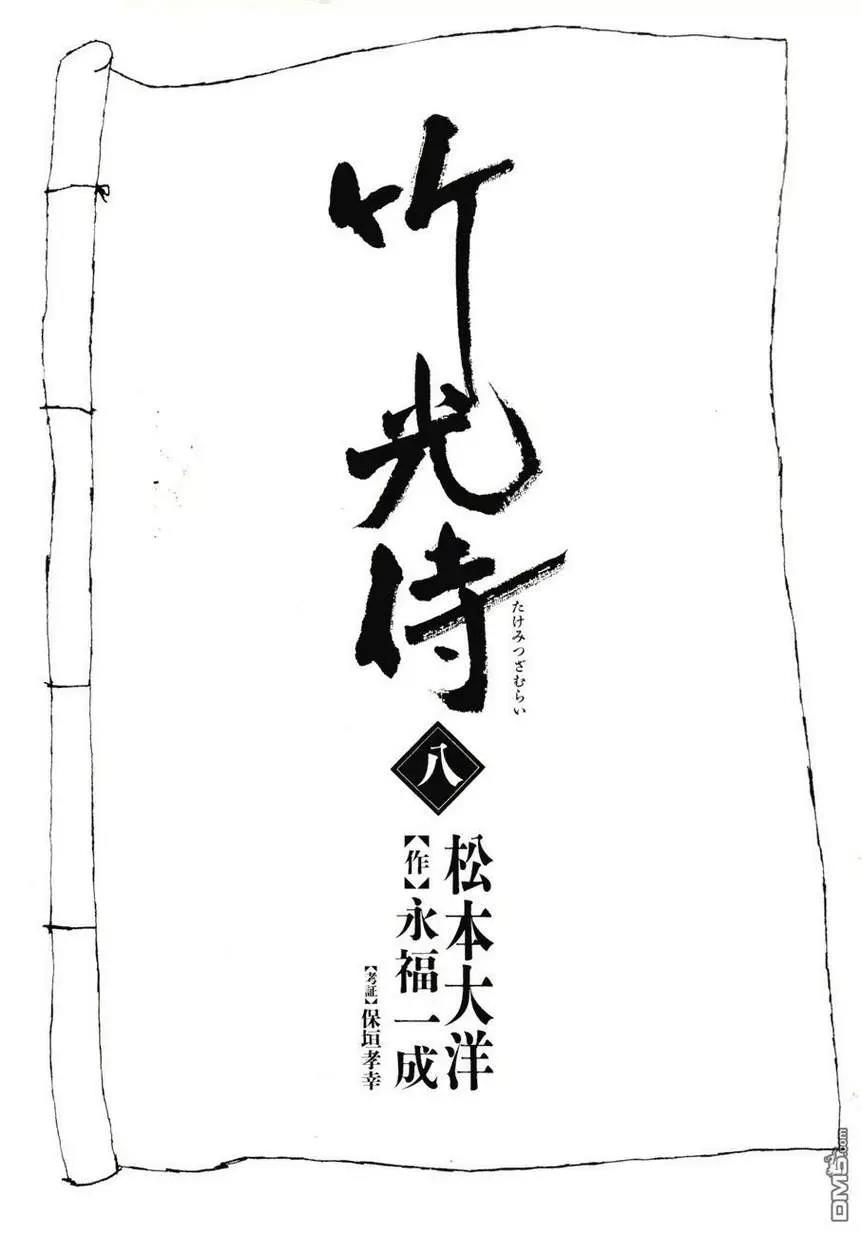 竹光侍
たけみつざむらい
八
松本大洋
【作】永福一成
【考証】保垣孝幸
DM5.com